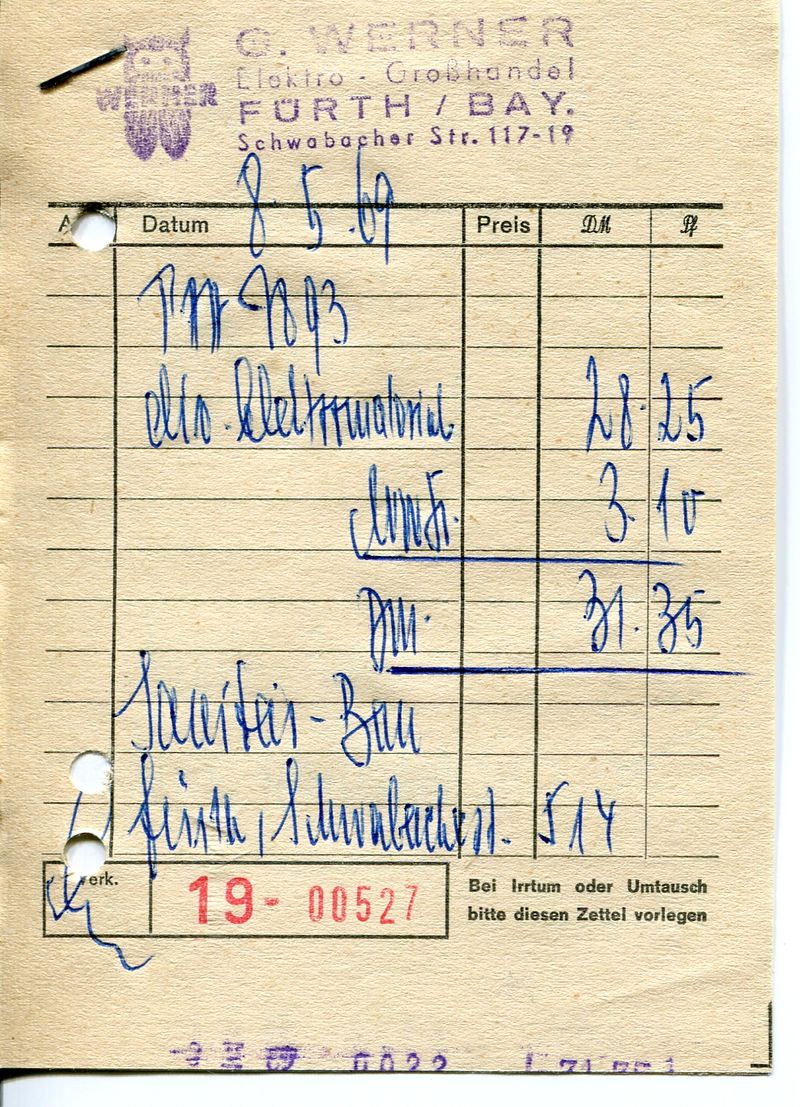 WERNER
G. WERNER
Elektro - Großhandel
FÜRTH / BAY.
Schwabacher Str. 117-19
Datum 8.5.69 Preis DM Pf
7893
div. Elektromaterial 28.25
Mwst. 3.10
DM. 31.35
Sanitär-Bau
Fürth, Schwabacherst. 514
19- 00527
Bei Irrtum oder Umtausch
bitte diesen Zettel vorlegen
69 0022